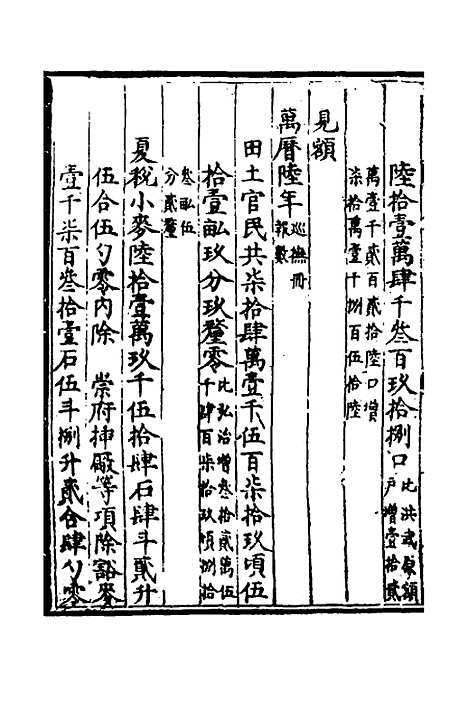 陸拾壹萬肆千叁百玖拾捌口比洪武原額戶增壹拾貳
萬壹千貳百貳拾陸口增柒拾萬壹千捌百伍拾陸
見額
萬曆陸年巡撫冊報數
田土官民共柒拾肆萬壹千伍百柒拾玖頃伍
拾壹畝玖分玖釐零比弘治增叁拾貳萬伍千肆百柒拾玖頃捌拾
叁畝伍分貳釐
夏稅小麥陸拾壹萬玖千伍拾肆石肆斗貳升
伍合伍勺零內除 崇府挿厰等項除豁麥
壹千柒百叁拾壹石伍斗捌升貳合肆勺零